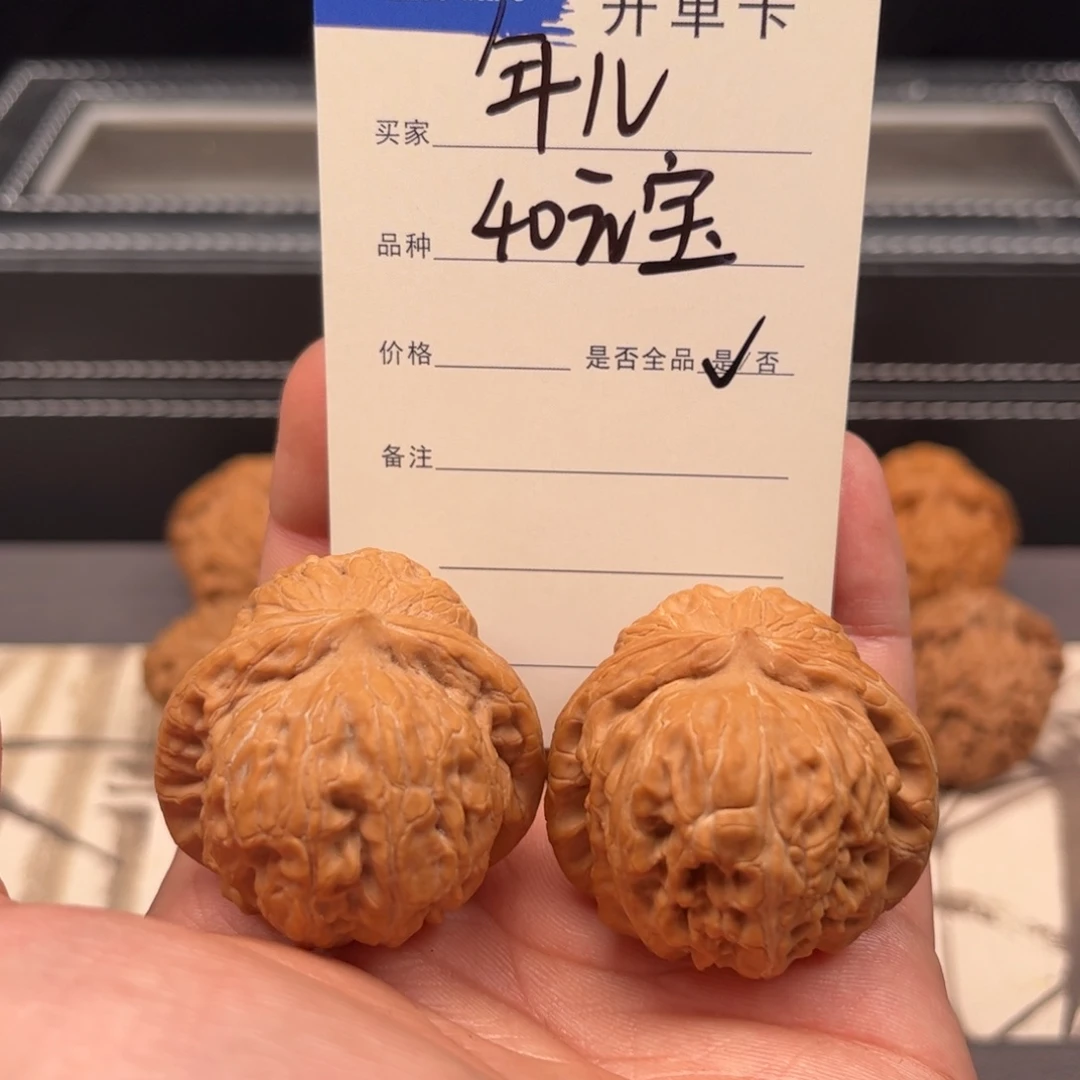 开单卡
买家 年儿
品种 40元宝
价格 是否全品 是✓/否
备注